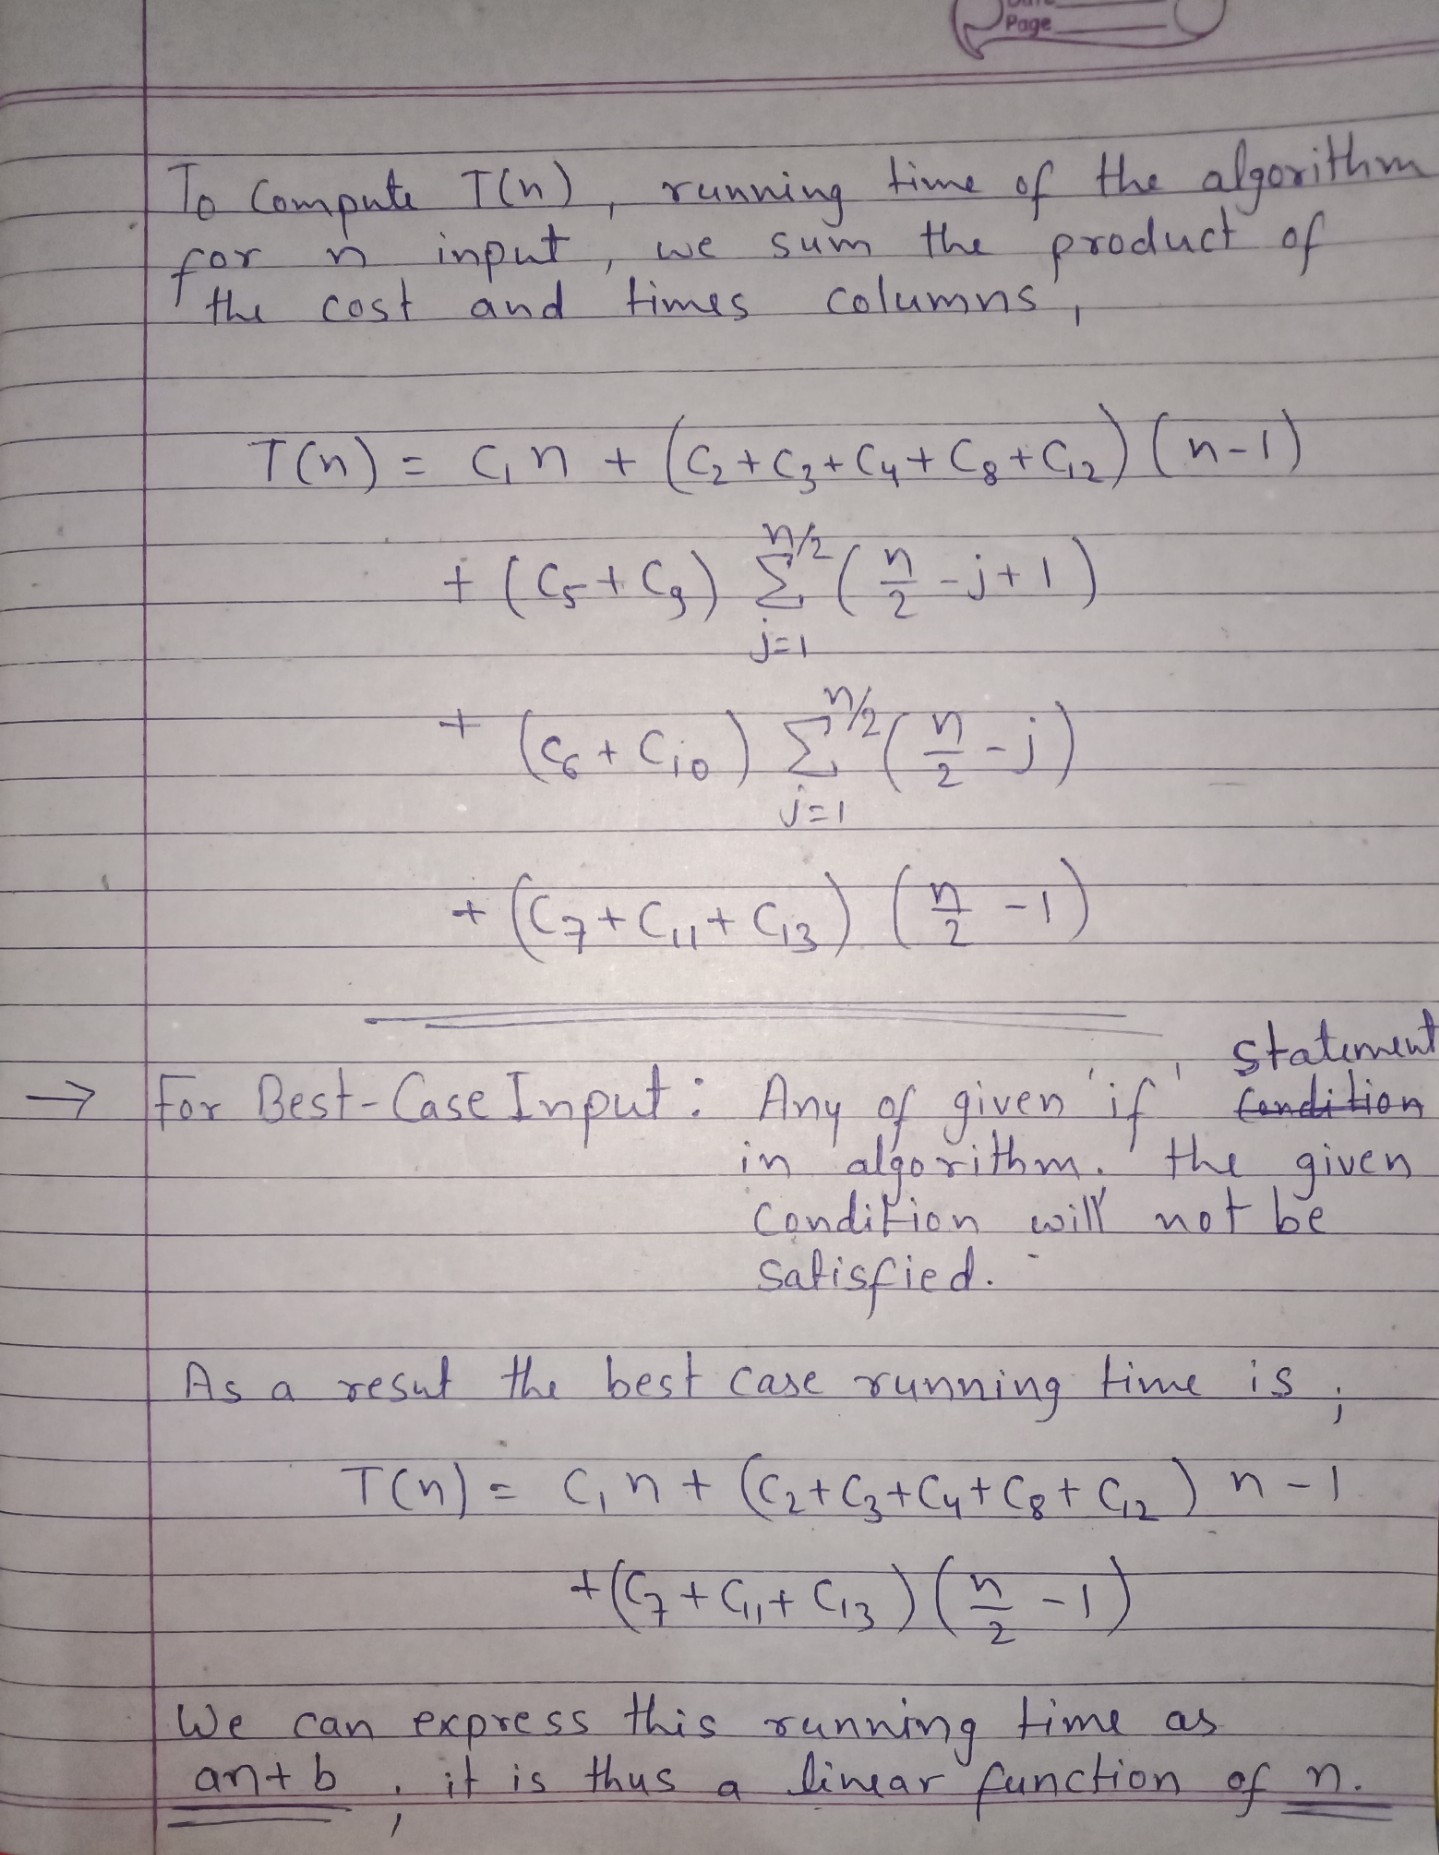 Page
To Compute T(n), running time of the algorithm
for n input, we sum the product of
the cost and times columns,
T(n) = C₁n + (C₂+C₃+C₄+C₈+C₁₂)(n-1)
+ (C₅+C₉) Σ_{j=1}^{n/2} (n/2 - j+1)
+ (C₆+C₁₀) Σ_{j=1}^{n/2} (n/2 - j)
+ (C₇+C₁₁+C₁₃) (n/2 - 1)
→ For Best-Case Input: Any of given 'if' statement
condition
in algorithm. the given
Condition will not be
satisfied.
As a resut the best case running time is;
T(n) = C₁n + (C₂+C₃+C₄+C₈+C₁₂) n-1
+(C₇+C₁₁+C₁₃)(n/2 - 1)
We can express this running time as
an+b ; it is thus a linear function of n.